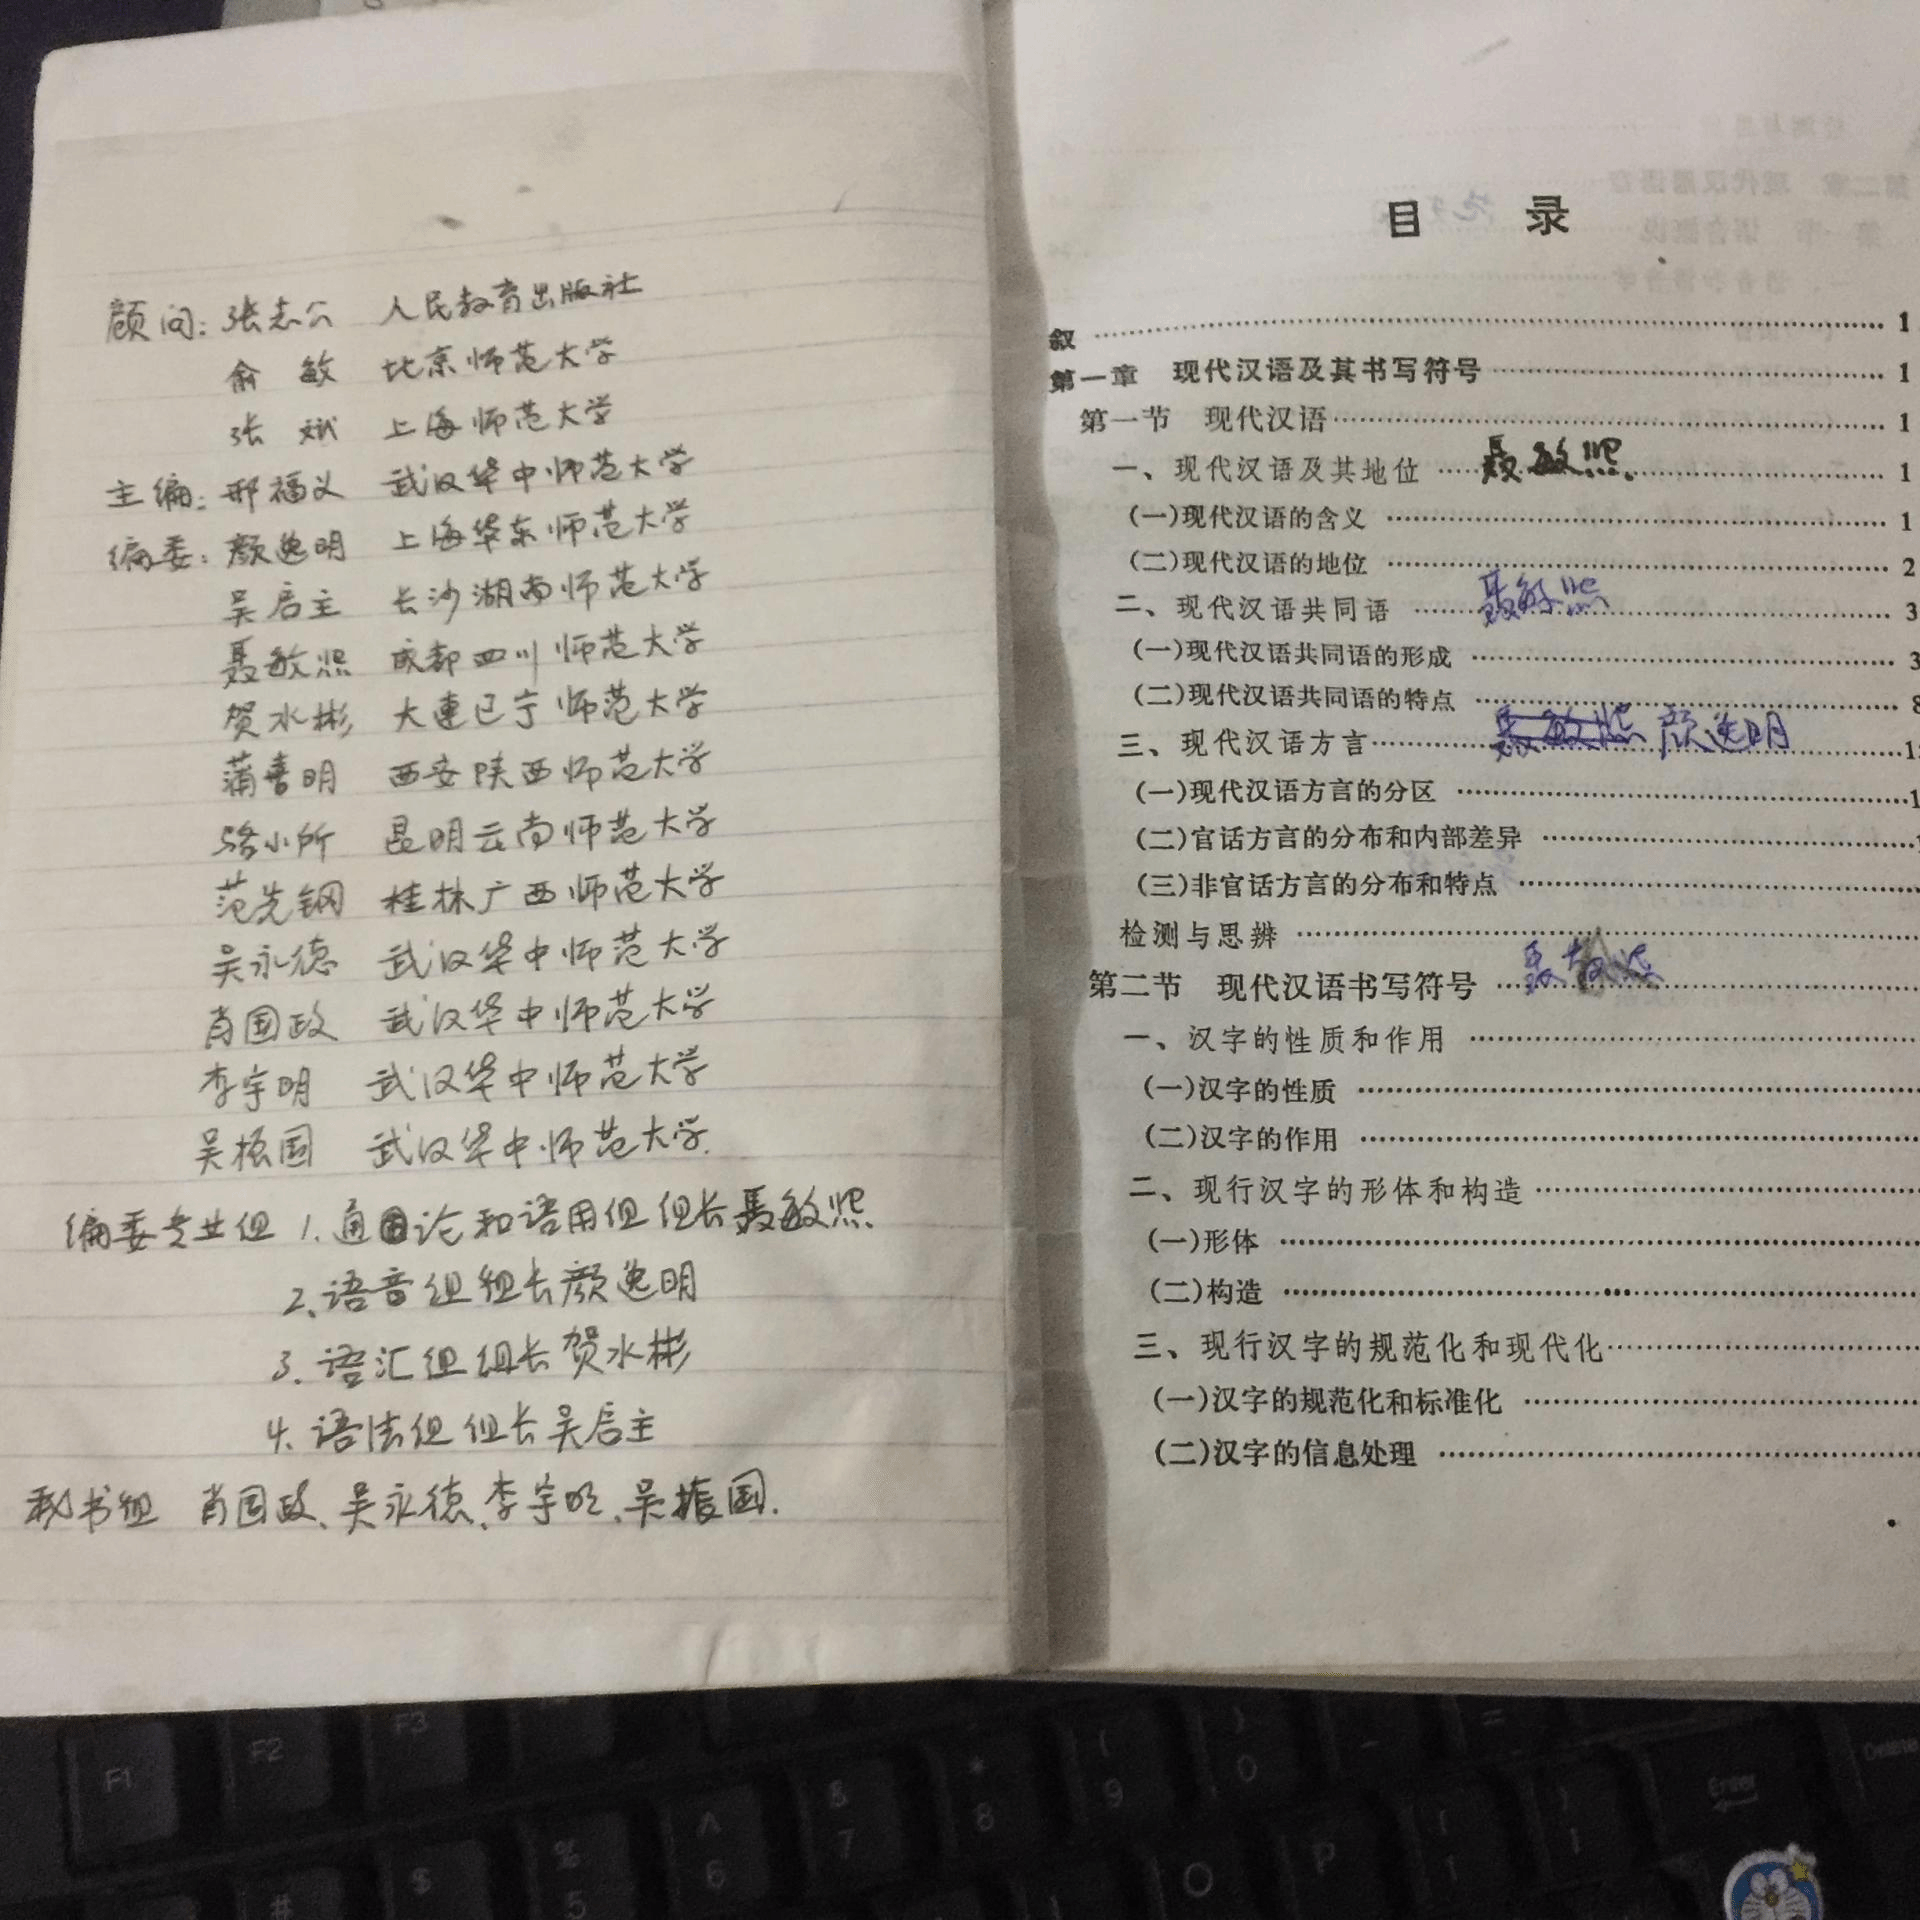 顾问：张志公 人民教育出版社
俞敏 北京师范大学
张斌 上海师范大学
主编：邢福义 武汉华中师范大学
编委：颜逸明 上海华东师范大学
吴启主 长沙湖南师范大学
聂敏熙 成都四川师范大学
贺水彬 大連辽宁师范大学
蒲喜明 西安陕西师范大学
骆小所 昆明云南师范大学
范先钢 桂林广西师范大学
吴永德 武汉华中师范大学
肖国政 武汉华中师范大学
李宇明 武汉华中师范大学
吴振国 武汉华中师范大学.
编委专业组 1.通论和语用组 组长聂敏熙
2.语音组组长颜逸明
3.语汇组组长贺水彬
4.语法组组长吴启主
秘书组 肖国政、吴永德、李宇明、吴振国.
目 录
叙 1
第一章 现代汉语及其书写符号 1
第一节 现代汉语 1
一、现代汉语及其地位 聂敏熙. 1
(一)现代汉语的含义 1
(二)现代汉语的地位 2
二、现代汉语共同语 聂敏熙 3
(一)现代汉语共同语的形成 3
(二)现代汉语共同语的特点 8
三、现代汉语方言 聂敏熙 颜逸明
(一)现代汉语方言的分区
(二)官话方言的分布和内部差异
(三)非官话方言的分布和特点
检测与思辨
第二节 现代汉语书写符号 聂敏熙
一、汉字的性质和作用
(一)汉字的性质
(二)汉字的作用
二、现行汉字的形体和构造
(一)形体
(二)构造
三、现行汉字的规范化和现代化
(一)汉字的规范化和标准化
(二)汉字的信息处理
F1 F2 F3
& 7 * 8 ( 9 ) 0 - = Delete
# $ % 5 ^ 6 O P Enter